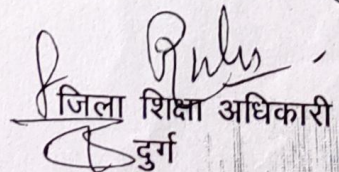 जिला शिक्षा अधिकारी
दुर्ग